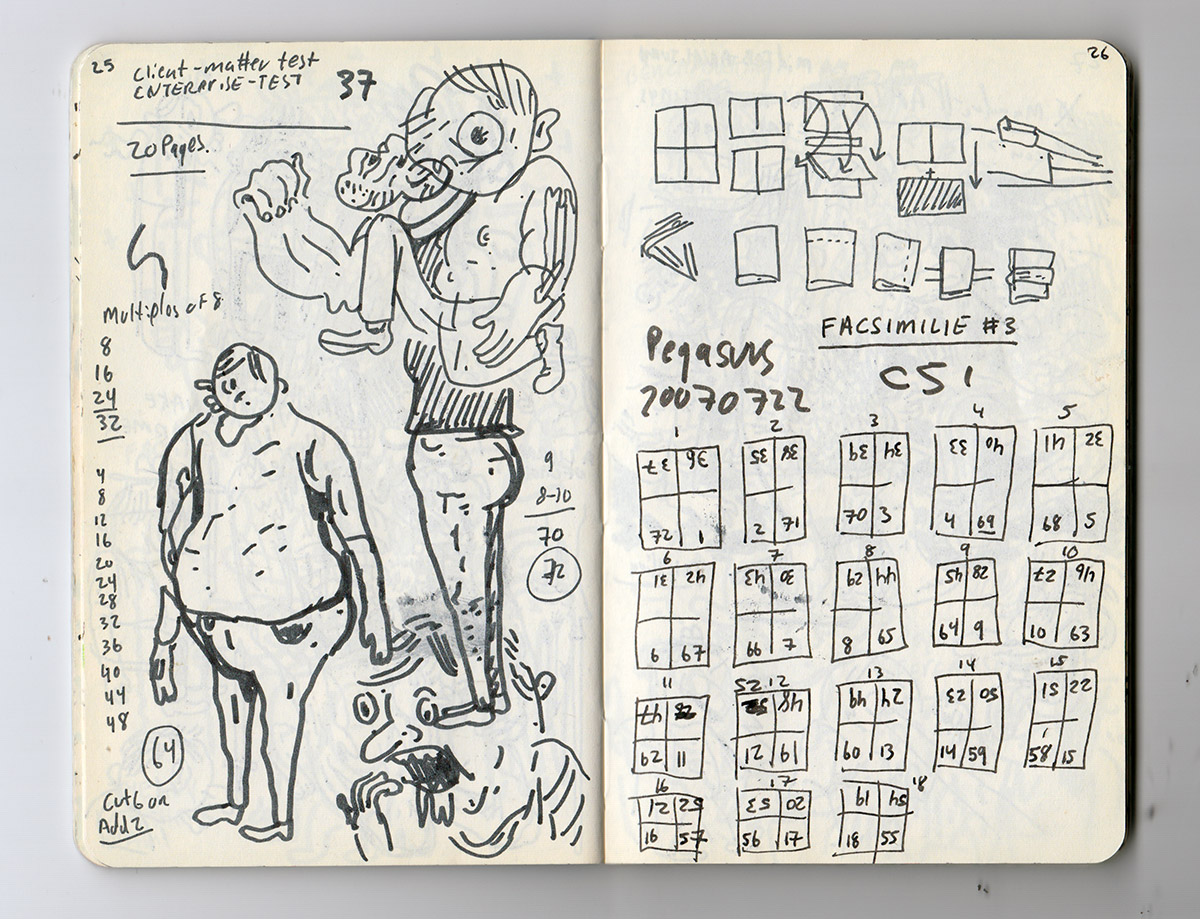 25
Client-matter test
ENTERPRISE-TEST
37
20 Pages.
Multiples of 8
8
16
24
32
4
8
12
16
20
24
28
32
36
40
44
48
64
Cut 6 or
Add 2
9
8-10
70
72
26
+
FACSIMILIE #3
Pegasus
CS1
20070722
1 2 3 4 5
37 36 35 38 39 34 33 40 41 32
72 1 2 71 70 3 4 69 68 5
6 7 8 9 10
31 42 43 30 29 44 45 28 27 46
6 67 66 7 8 65 64 9 10 63
11 25 12 13 14 15
47 48 49 24 23 50 51 22
62 11 12 61 60 13 14 59 58 15
16 17 18
21 52 53 20 19 54
16 57 56 17 18 55